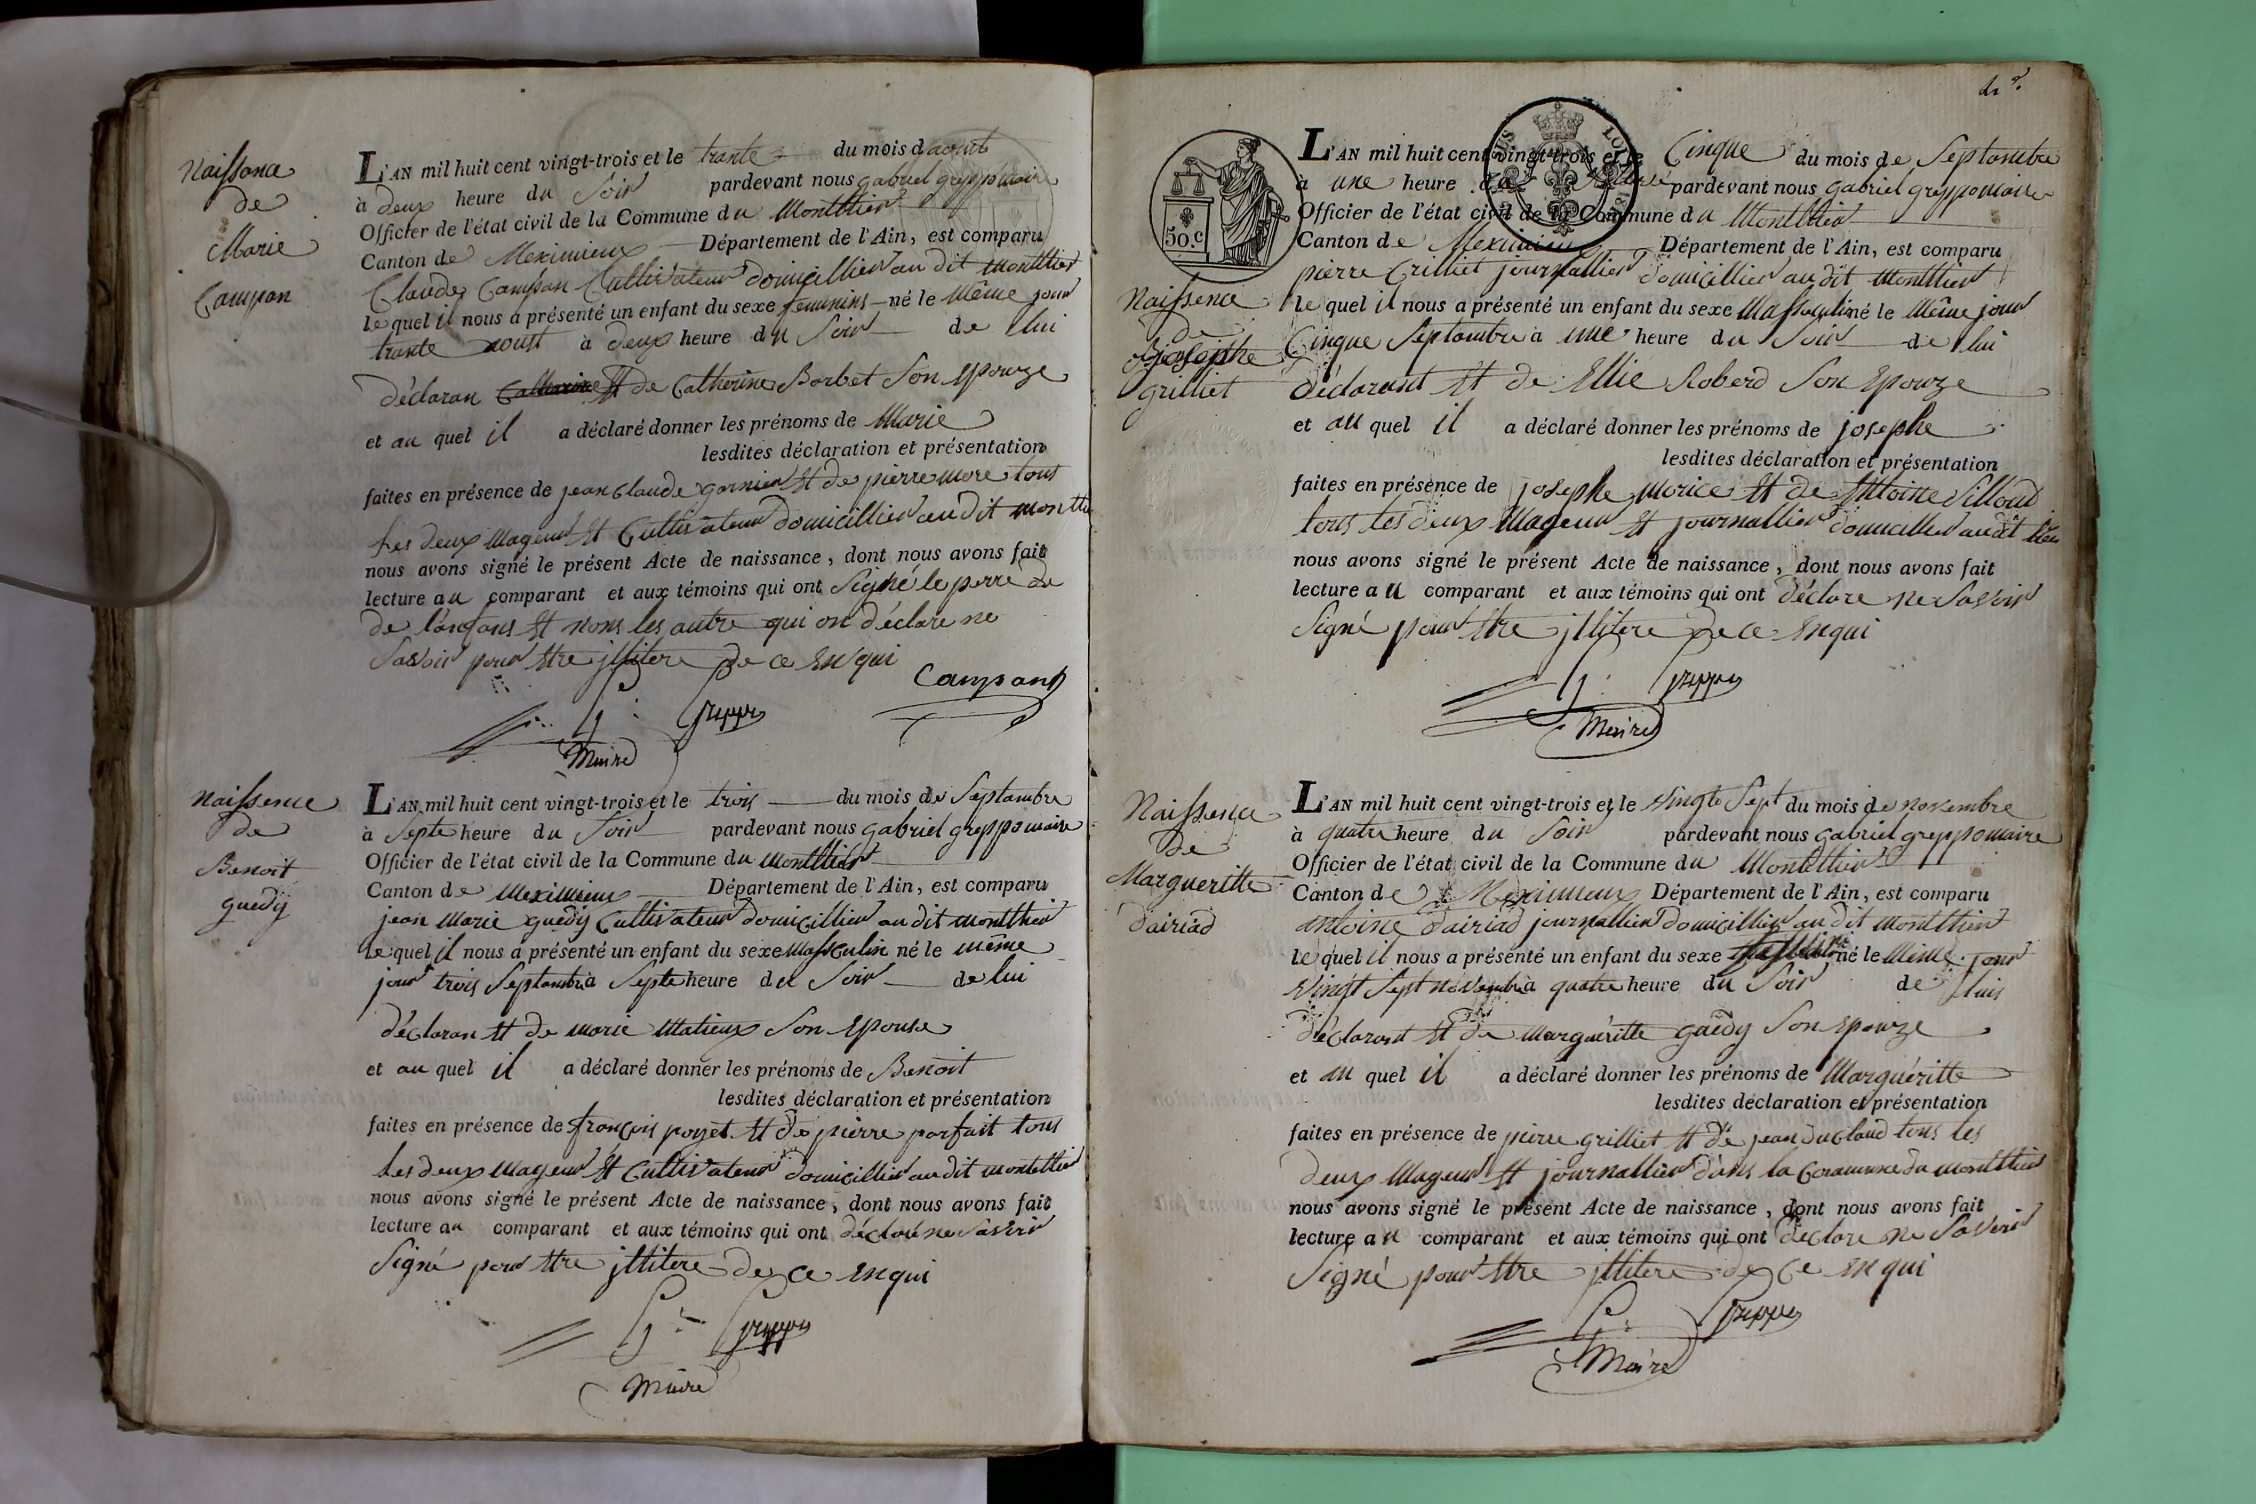 Naissance
de
Marie
Campan
L'AN mil huit cent vingt-trois et le trante du mois d'aoust
à deux heure du Soir pardevant nous gabriel greppo maire
Officier de l'état civil de la Commune du Montthier
Canton de Meximieux Département de l'Ain, est comparu
Claude Campan Cultivateur domicillier au dit Montthier
lequel il nous a présenté un enfant du sexe feminins né le Même jour
trante aoust à deux heure du Soir de lui
déclaran Et de Catherine Borbet Son Epouze
et au quel il a déclaré donner les prénoms de Marie
lesdites déclaration et présentation
faites en présence de jean Claude garnier Et de pierre more tous
les deux Mageur Et Cultivateur domicillier au dit montth
nous avons signé le présent Acte de naissance, dont nous avons fait
lecture au comparant et aux témoins qui ont Signé le perre de
de l'anfans Et nons les autre qui on déclare ne
Savoir pour Etre jllitere de ce Enqui
Campan
g. greppo
Maire
Naissence
de
Benoit
guedy
L'AN mil huit cent vingt-trois et le trois du mois de Septambre
à Septe heure du Soir pardevant nous gabriel greppo maire
Officier de l'état civil de la Commune du Montthier
Canton de Meximieux Département de l'Ain, est comparu
jean Marie guedy Cultivateur domicillier au dit Montthier
lequel il nous a présenté un enfant du sexe Masculin né le même
jour trois Septambre à Septe heure du Soir de lui
déclaran Et de marie Matieux Son Epouse
et au quel il a déclaré donner les prénoms de Benoit
lesdites déclaration et présentation
faites en présence de françois poyet Et de pierre parfait tous
les deux Mageur Et Cultivateur domicillier au dit montethier
nous avons signé le présent Acte de naissance, dont nous avons fait
lecture au comparant et aux témoins qui ont déclaré ne Savoir
Signé pour Etre jllitere de ce Enqui
g. greppo
Maire
50.c
Naissence
de
josephe
grilliet
L'AN mil huit cent vingt-trois et le Cinque du mois de Septambre
à une heure du pardevant nous gabriel greppo maire
Officier de l'état civil de la Commune du Montthier
Canton de Meximieux Département de l'Ain, est comparu
pierre Grilliet journallier domicillier au dit Montthier
lequel il nous a présenté un enfant du sexe Massculin né le Même jour
Cinque Septambre à une heure du Soir de lui
déclarant Et de Ellie Roberd Son Epouze
et au quel il a déclaré donner les prénoms de josephe
lesdites déclaration et présentation
faites en présence de josephe Morice Et de Antoine Silloud
tous les deux Mageur Et journallier domicillier au dit lieu
nous avons signé le présent Acte de naissance, dont nous avons fait
lecture au comparant et aux témoins qui ont déclare ne Savoir
Signé pour Etre jllitere de ce Enqui
g. greppo
Maire
Naissence
de
Margueritte
dairiad
L'AN mil huit cent vingt-trois et le Vingte Sept du mois de novembre
à quatre heure du Soir pardevant nous gabriel greppo maire
Officier de l'état civil de la Commune du Montthier
Canton de Meximieux Département de l'Ain, est comparu
antoine dairiad journallier domicillier au dit montthier
lequel il nous a présenté un enfant du sexe né le Même jour
Vingt Sept novembre à quatre heure du Soir de luis
déclarant Et de Marguéritte guedy Son Epouze
et au quel il a déclaré donner les prénoms de Marguéritte
lesdites déclaration et présentation
faites en présence de pierre grilliet Et de jean duclaud tous les
deux Mageur Et journallier dans la Commune du Montthier
nous avons signé le présent Acte de naissance, dont nous avons fait
lecture au comparant et aux témoins qui ont déclare ne Savoir
Signé pour Etre jllitere de ce Enqui
g. greppo
Maire